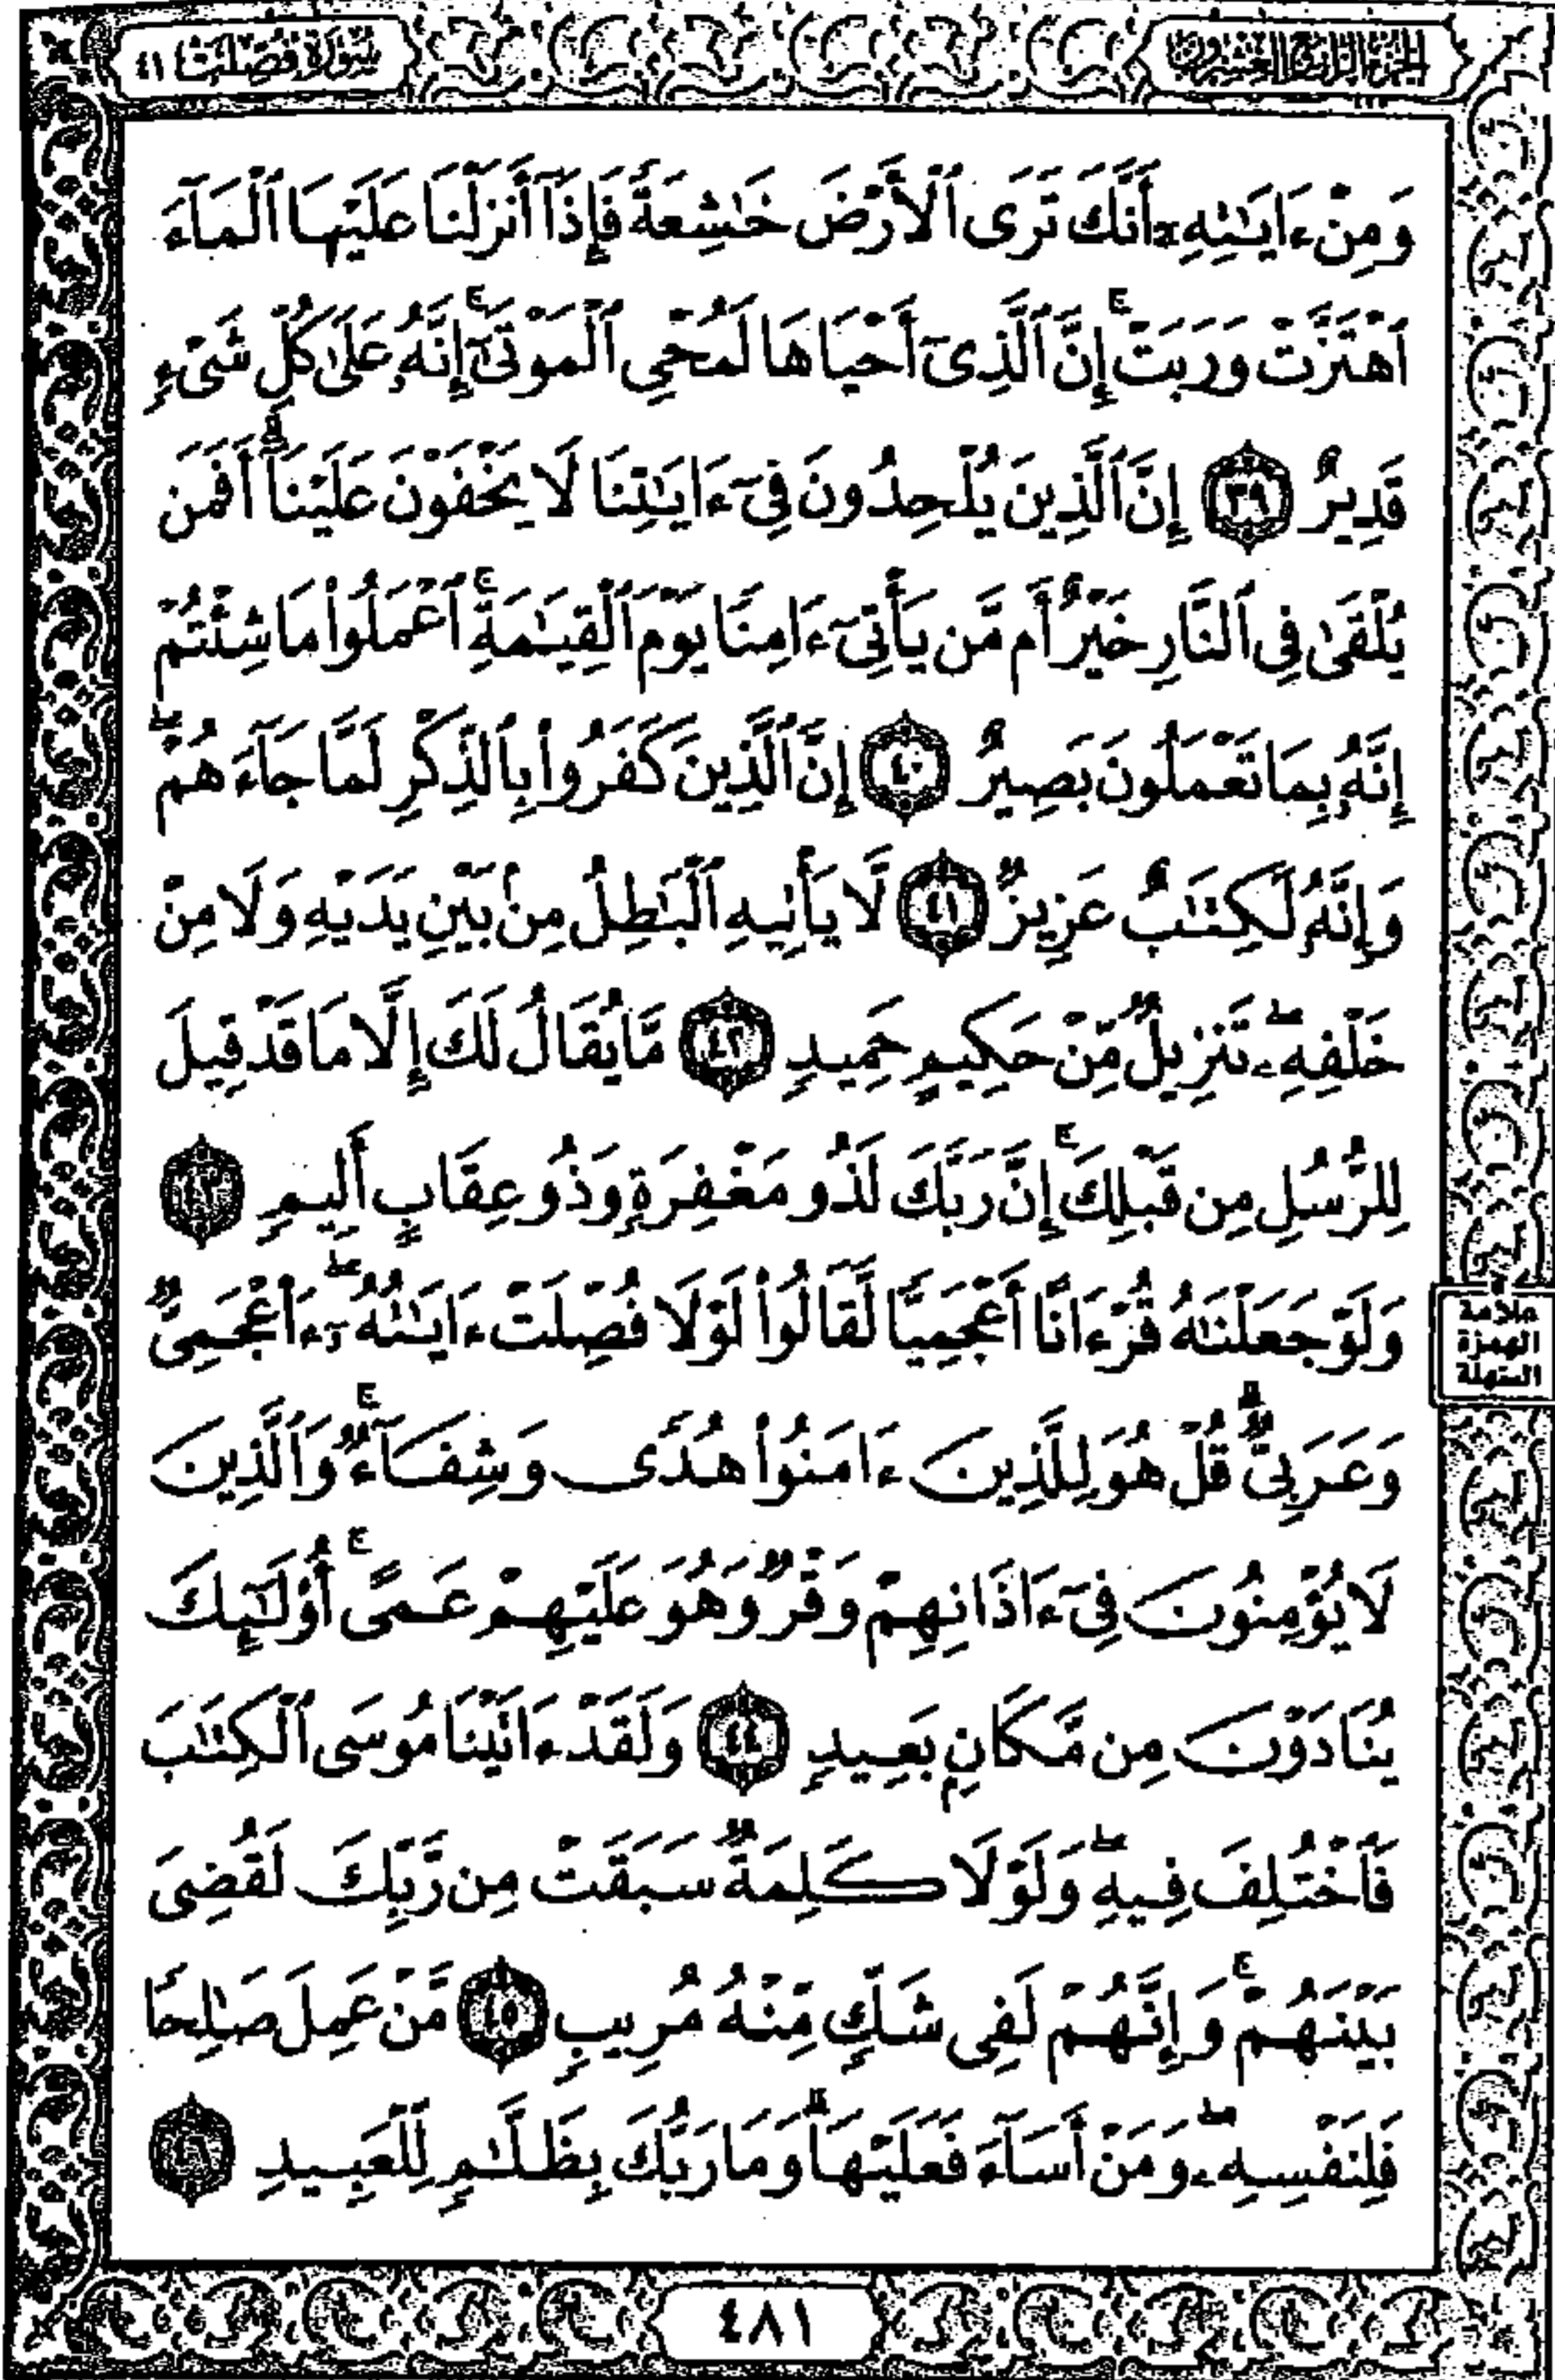 الجزء الرابع والعشرون
سورة فصلت ٤١
وَمِنْ ءَايَـٰتِهِۦٓ أَنَّكَ تَرَى ٱلْأَرْضَ خَـٰشِعَةً فَإِذَآ أَنزَلْنَا عَلَيْهَا ٱلْمَآءَ
ٱهْتَزَّتْ وَرَبَتْ ۚ إِنَّ ٱلَّذِىٓ أَحْيَاهَا لَمُحْىِ ٱلْمَوْتَىٰٓ ۚ إِنَّهُۥ عَلَىٰ كُلِّ شَىْءٍ
قَدِيرٌ ٣٩ إِنَّ ٱلَّذِينَ يُلْحِدُونَ فِىٓ ءَايَـٰتِنَا لَا يَخْفَوْنَ عَلَيْنَآ ۗ أَفَمَن
يُلْقَىٰ فِى ٱلنَّارِ خَيْرٌ أَم مَّن يَأْتِىٓ ءَامِنًا يَوْمَ ٱلْقِيَـٰمَةِ ۚ ٱعْمَلُوا۟ مَا شِئْتُمْ
إِنَّهُۥ بِمَا تَعْمَلُونَ بَصِيرٌ ٤٠ إِنَّ ٱلَّذِينَ كَفَرُوا۟ بِٱلذِّكْرِ لَمَّا جَآءَهُمْ ۖ
وَإِنَّهُۥ لَكِتَـٰبٌ عَزِيزٌ ٤١ لَّا يَأْتِيهِ ٱلْبَـٰطِلُ مِنۢ بَيْنِ يَدَيْهِ وَلَا مِنْ
خَلْفِهِۦ ۖ تَنزِيلٌ مِّنْ حَكِيمٍ حَمِيدٍ ٤٢ مَّا يُقَالُ لَكَ إِلَّا مَا قَدْ قِيلَ
لِلرُّسُلِ مِن قَبْلِكَ ۚ إِنَّ رَبَّكَ لَذُو مَغْفِرَةٍ وَذُو عِقَابٍ أَلِيمٍ ٤٣
وَلَوْ جَعَلْنَـٰهُ قُرْءَانًا أَعْجَمِيًّا لَّقَالُوا۟ لَوْلَا فُصِّلَتْ ءَايَـٰتُهُۥٓ ۖ ءَا۬عْجَمِىٌّ
وَعَرَبِىٌّ ۗ قُلْ هُوَ لِلَّذِينَ ءَامَنُوا۟ هُدًى وَشِفَآءٌ ۚ وَٱلَّذِينَ
لَا يُؤْمِنُونَ فِىٓ ءَاذَانِهِمْ وَقْرٌ وَهُوَ عَلَيْهِمْ عَمًى ۚ أُو۟لَـٰٓئِكَ
يُنَادَوْنَ مِن مَّكَانٍۭ بَعِيدٍ ٤٤ وَلَقَدْ ءَاتَيْنَا مُوسَى ٱلْكِتَـٰبَ
فَٱخْتُلِفَ فِيهِ ۗ وَلَوْلَا كَلِمَةٌ سَبَقَتْ مِن رَّبِّكَ لَقُضِىَ
بَيْنَهُمْ ۚ وَإِنَّهُمْ لَفِى شَكٍّ مِّنْهُ مُرِيبٍ ٤٥ مَّنْ عَمِلَ صَـٰلِحًا
فَلِنَفْسِهِۦ ۖ وَمَنْ أَسَآءَ فَعَلَيْهَا ۗ وَمَا رَبُّكَ بِظَلَّـٰمٍ لِّلْعَبِيدِ ٤٦
علامة
الهمزة
المسهلة
٤٨١